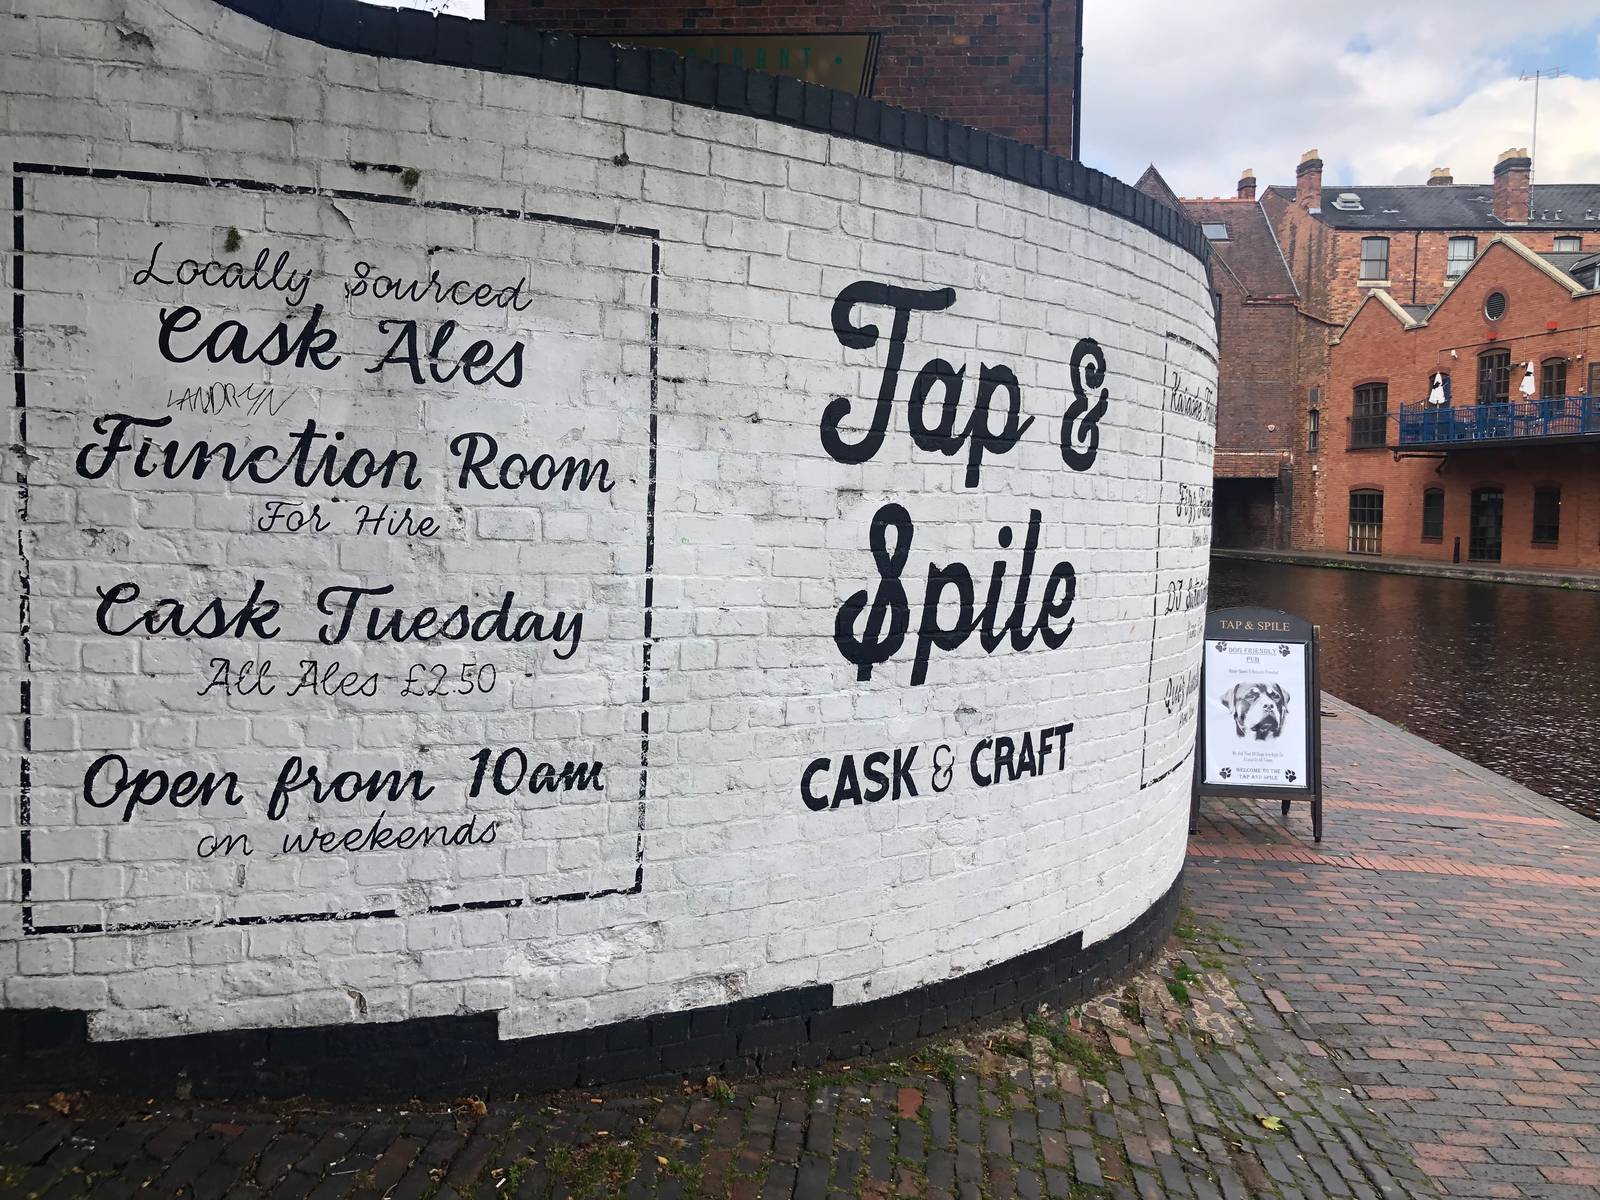 Locally Sourced
Cask Ales
LANDRYN
Function Room
For Hire
Cask Tuesday
All Ales £2.50
Open from 10am
on weekends
Tap &
Spile
CASK & CRAFT
Karaoke
DJ
TAP & SPILE
DOG FRIENDLY
PUB
WELCOME TO THE
TAP AND SPILE